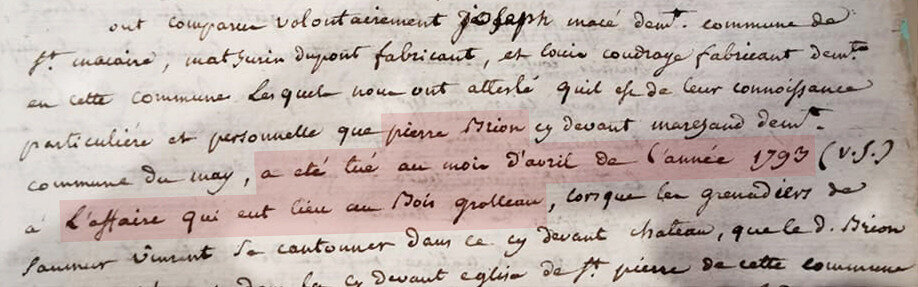 ont comparu volontairement joseph macé demt. commune de
St. macaire, mathurin dupont fabricant, et louis coudrage fabricant demt.
en cette commune Lesquels nous ont attesté quil est de leur connoissance
particuliére et personnelle que pierre Brion cy devant marchand demt.
commune du may, a eté tué au mois d'avril de l'année 1793 (v.s.)
à L'affaire qui eut lieu au Bois grolleau, lorsque les grenadiers de
saumur vinrent se cantonner dans ce cy devant chateau, que le d. Brion
dans la cy devant eglise de St. pierre de cette commune